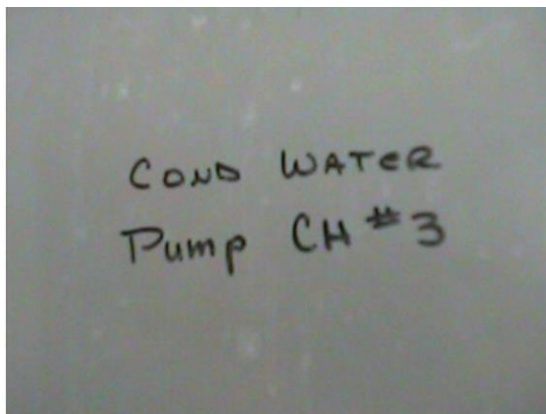 COND WATER
Pump CH #3